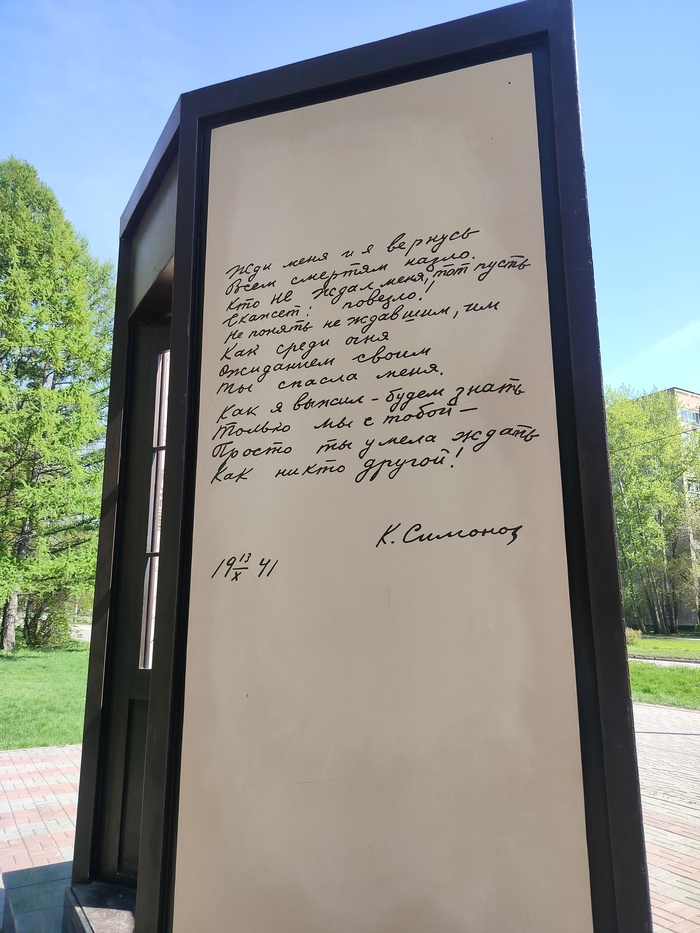 Жди меня и я вернусь
Всем смертям назло.
Кто не ждал меня, тот пусть
Скажет: повезло!
Не понять не ждавшим, им
Как среди огня
Ожиданием своим
Ты спасла меня.
Как я выжил - будем знать
Только мы с тобой —
Просто ты умела ждать
Как никто другой!
К. Симонов
19 13/X 41